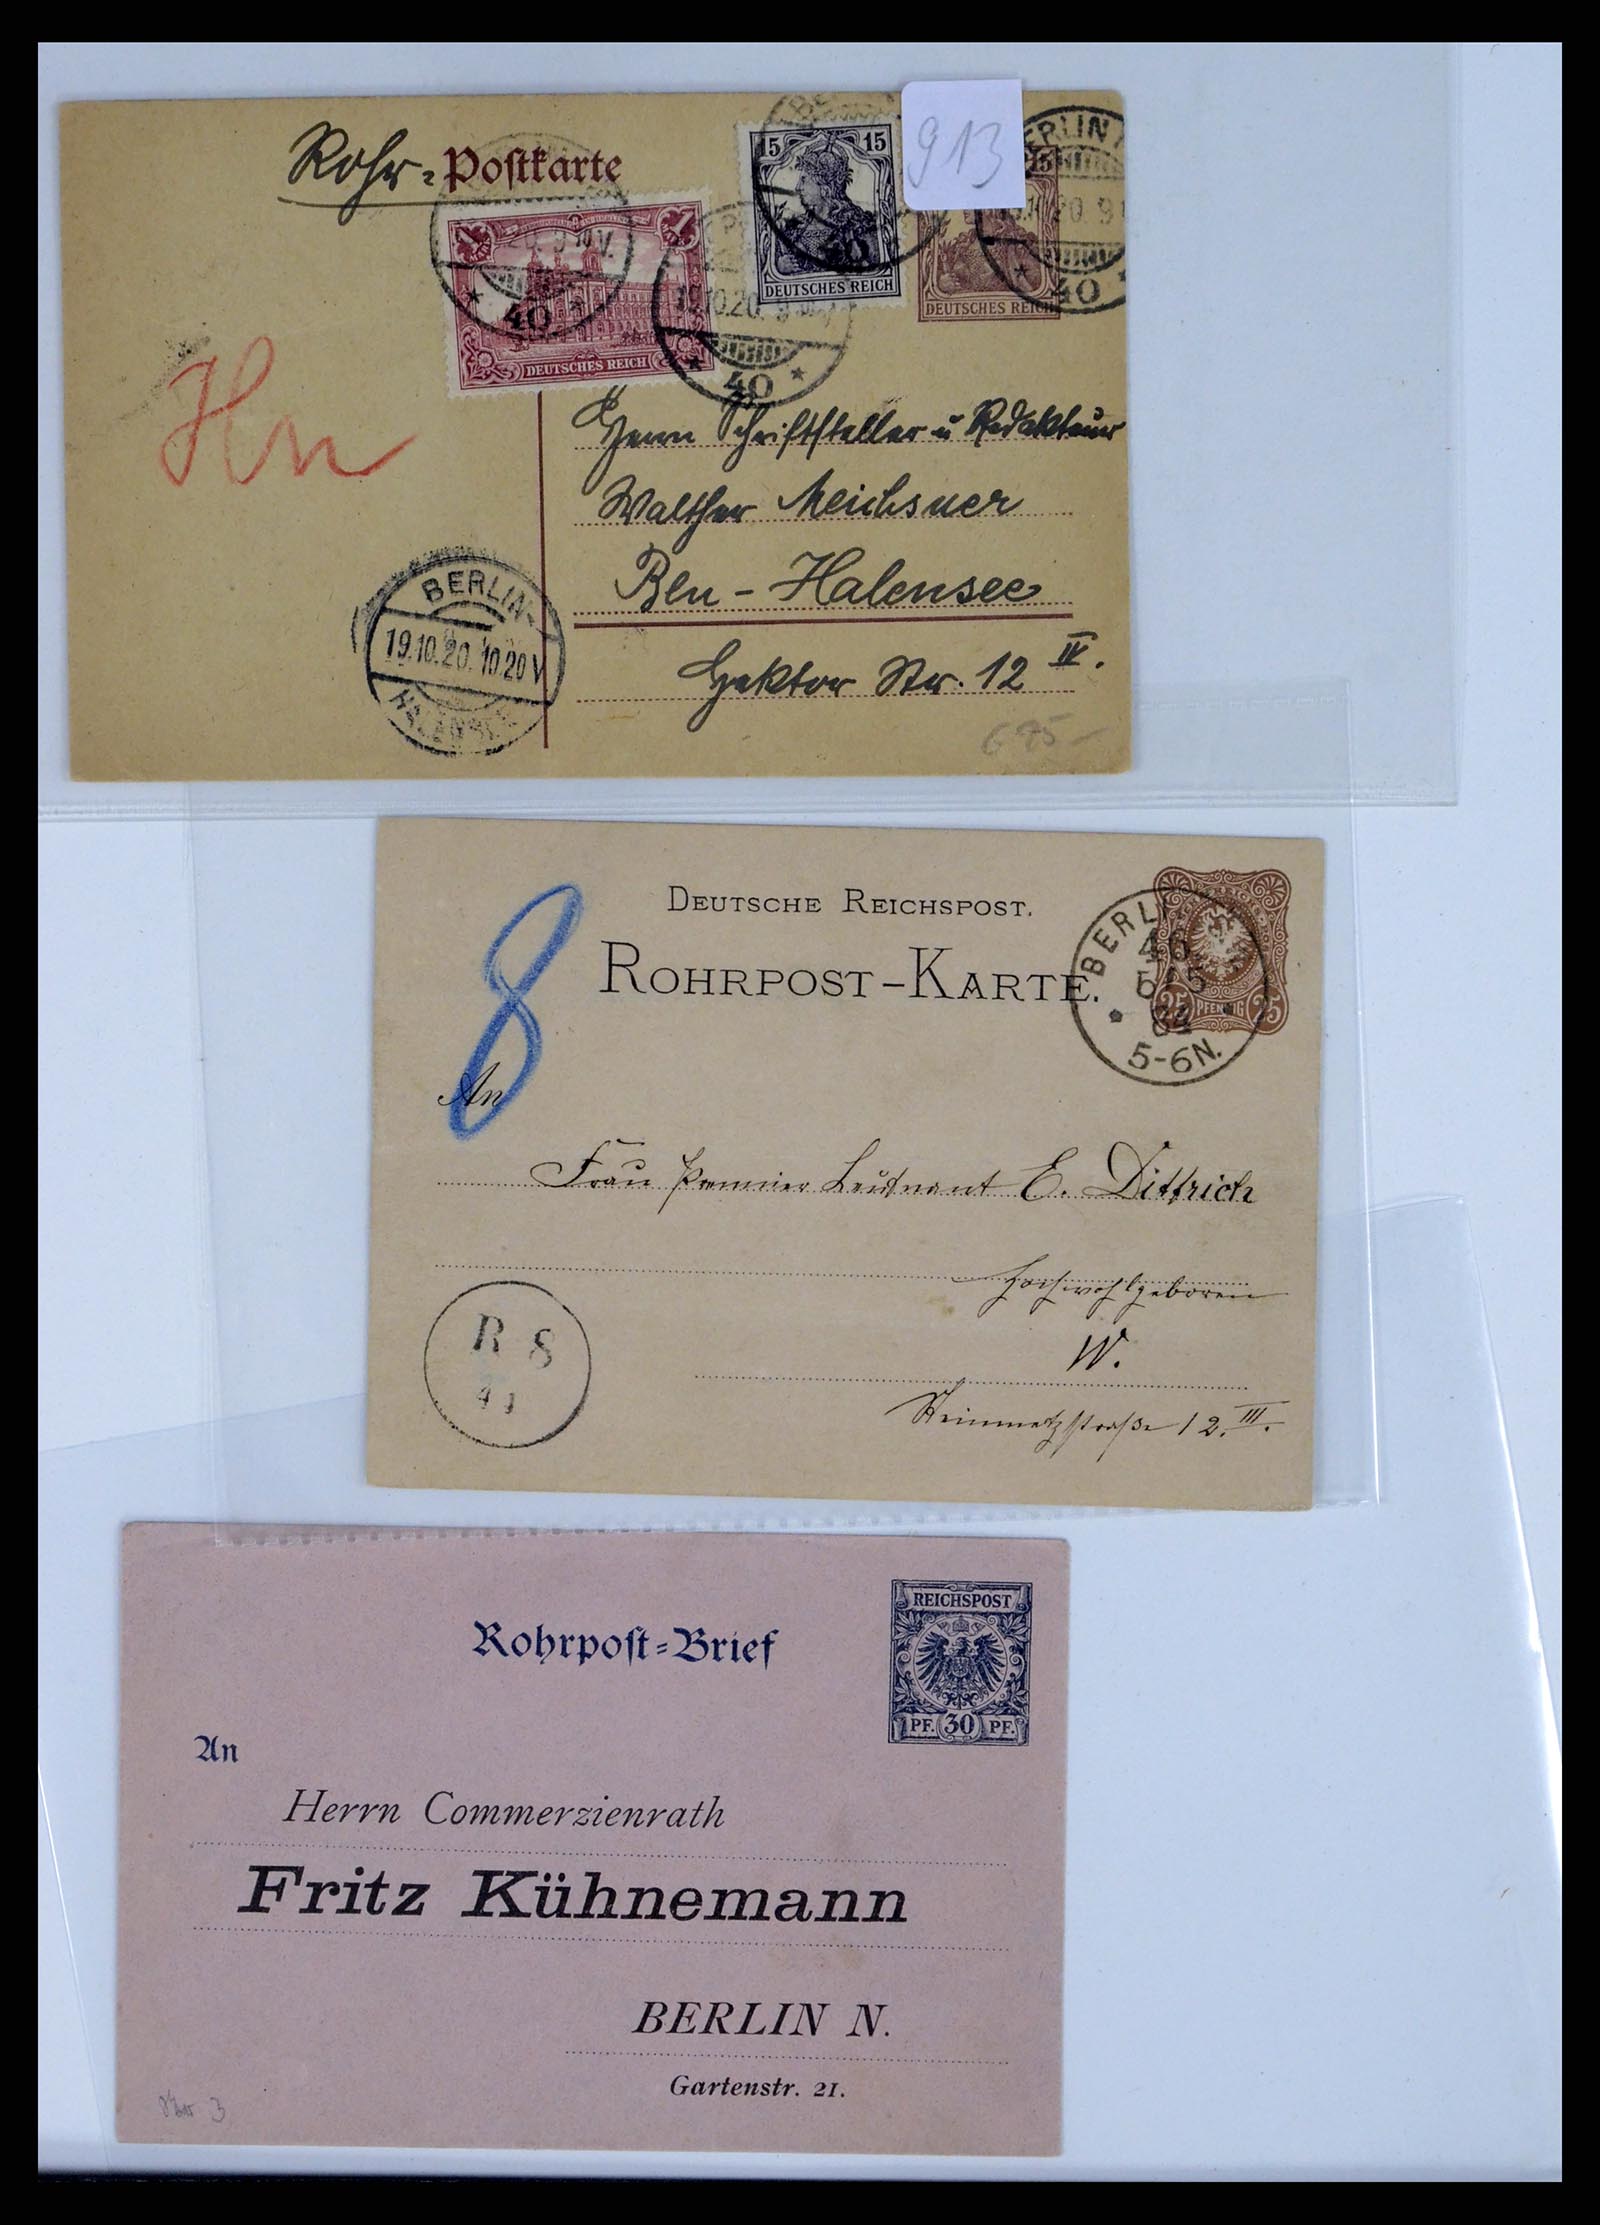 Rohr-Postkarte
913
15 15
DEUTSCHES REICH
1 1
DEUTSCHES REICH
15
DEUTSCHES REICH
BERLIN
19.10.20. 9
40
40
40
Hn
Herrn Schriftsteller u Redakteur
Walther Meichsner
Bln - Halensee
Hektor Str. 12 IV.
BERLIN-
19.10.20. 10.20 V
HALENSEE
DEUTSCHE REICHSPOST.
ROHRPOST-KARTE.
25 PFENNIG 25
BERLIN
5-6N.
8
An
Frau Premier Leutnant E. Dittrich
Hochwohlgeboren
W.
Steinmetzstraße 12. III.
R 8
Rohrpost-Brief
REICHSPOST
PF. 30 PF.
An
Herrn Commerzienrath
Fritz Kühnemann
BERLIN N.
Gartenstr. 21.
3